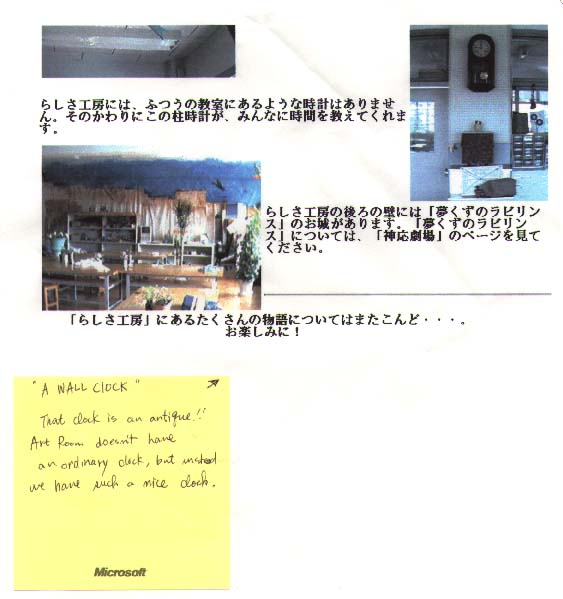 らしさ工房には、ふつうの教室にあるような時計はありませ
ん。そのかわりにこの柱時計が、みんなに時間を教えてくれま
す。
らしさ工房の後ろの壁には「夢くずのラビリン
ス」のお城があります。「夢くずのラビリン
ス」については、「神応劇場」のページを見て
ください。
「らしさ工房」にあるたくさんの物語についてはまたこんど・・・。
お楽しみに！
"A WALL CLOCK"
That clock is an antique!!
Art Room doesn't have
an ordinary clock, but instead
we have such a nice clock.
Microsoft